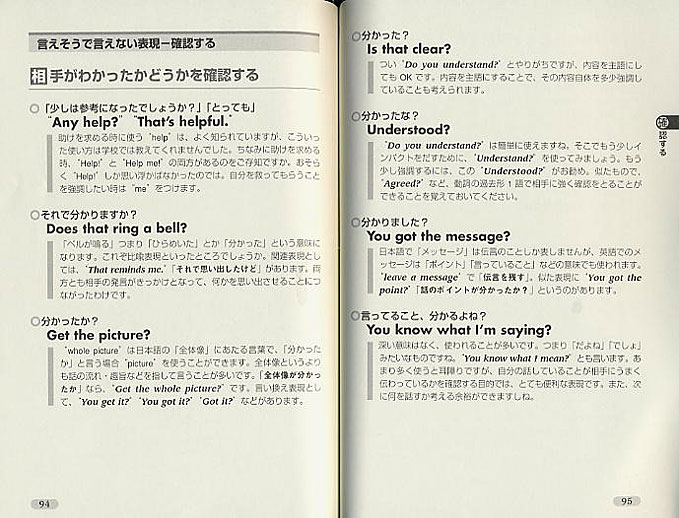 言えそうで言えない表現－確認する
相手がわかったかどうかを確認する
○「少しは参考になったでしょうか？」「とっても」
"Any help?" "That's helpful."
助けを求める時に使う "help" は、よく知られていますが、こういっ
た使い方は学校では教えてくれませんでした。ちなみに助けを求める
時、"Help!" と "Help me!" の両方があるのをご存知ですか。おそら
く "Help!" しか思い浮かばなかったのでは。自分を救ってもらうこと
を強調したい時は "me" をつけます。
○それで分かりますか？
Does that ring a bell?
「ベルが鳴る」つまり「ひらめいた」とか「分かった」という意味に
なります。これぞ比喩表現といったところでしょうか。関連表現とし
ては、"That reminds me."「それで思い出したけど」があります。両
方とも相手の発言がきっかけとなって、何かを思い出させることにつ
ながったわけです。
○分かったか？
Get the picture?
"whole picture" は日本語の「全体像」にあたる言葉で、「分かった
か」と言う場合 "picture" を使うことができます。全体像というより
も話の流れ・趣旨などを指して言うことが多いです。「全体像が分かっ
たか」なら、"Get the whole picture?" です。言い換え表現とし
て、"You get it?" "You got it?" "Got it?" などがあります。
94
○分かった？
Is that clear?
つい "Do you understand?" とやりがちですが、内容を主語にし
ても OK です。内容を主語にすることで、その内容自体を多少強調し
ていることも考えられます。
○分かったな？
Understood?
"Do you understand?" は簡単に使えますね。そこでもう少しイ
ンパクトをだすために、"Understand?" を使ってみましょう。もう
少し強調するには、この "Understood?" がお勧め。似たもので、
"Agreed?" など、動詞の過去形 1 語で相手に強く確認をとることが
できることを覚えておいてください。
○分かりました？
You got the message?
日本語で「メッセージ」は伝言のことしか表しませんが、英語でのメ
ッセージは「ポイント」「言っていること」などの意味でも使われます。
"leave a message" で「伝言を残す」。似た表現に "You got the
point?"「話のポイントが分かったか？」というのがあります。
○言ってること、分かるよね？
You know what I'm saying?
深い意味はなく、使われることが多いです。つまり「だよね」「でしょ」
みたいなものですね。"You know what I mean?" とも言います。あ
まり多く使うと耳障りですが、自分の話していることが相手にうまく
伝わっているかを確認する目的では、とても便利な表現です。また、次
に何を話すか考える余裕ができますしね。
確認する
95